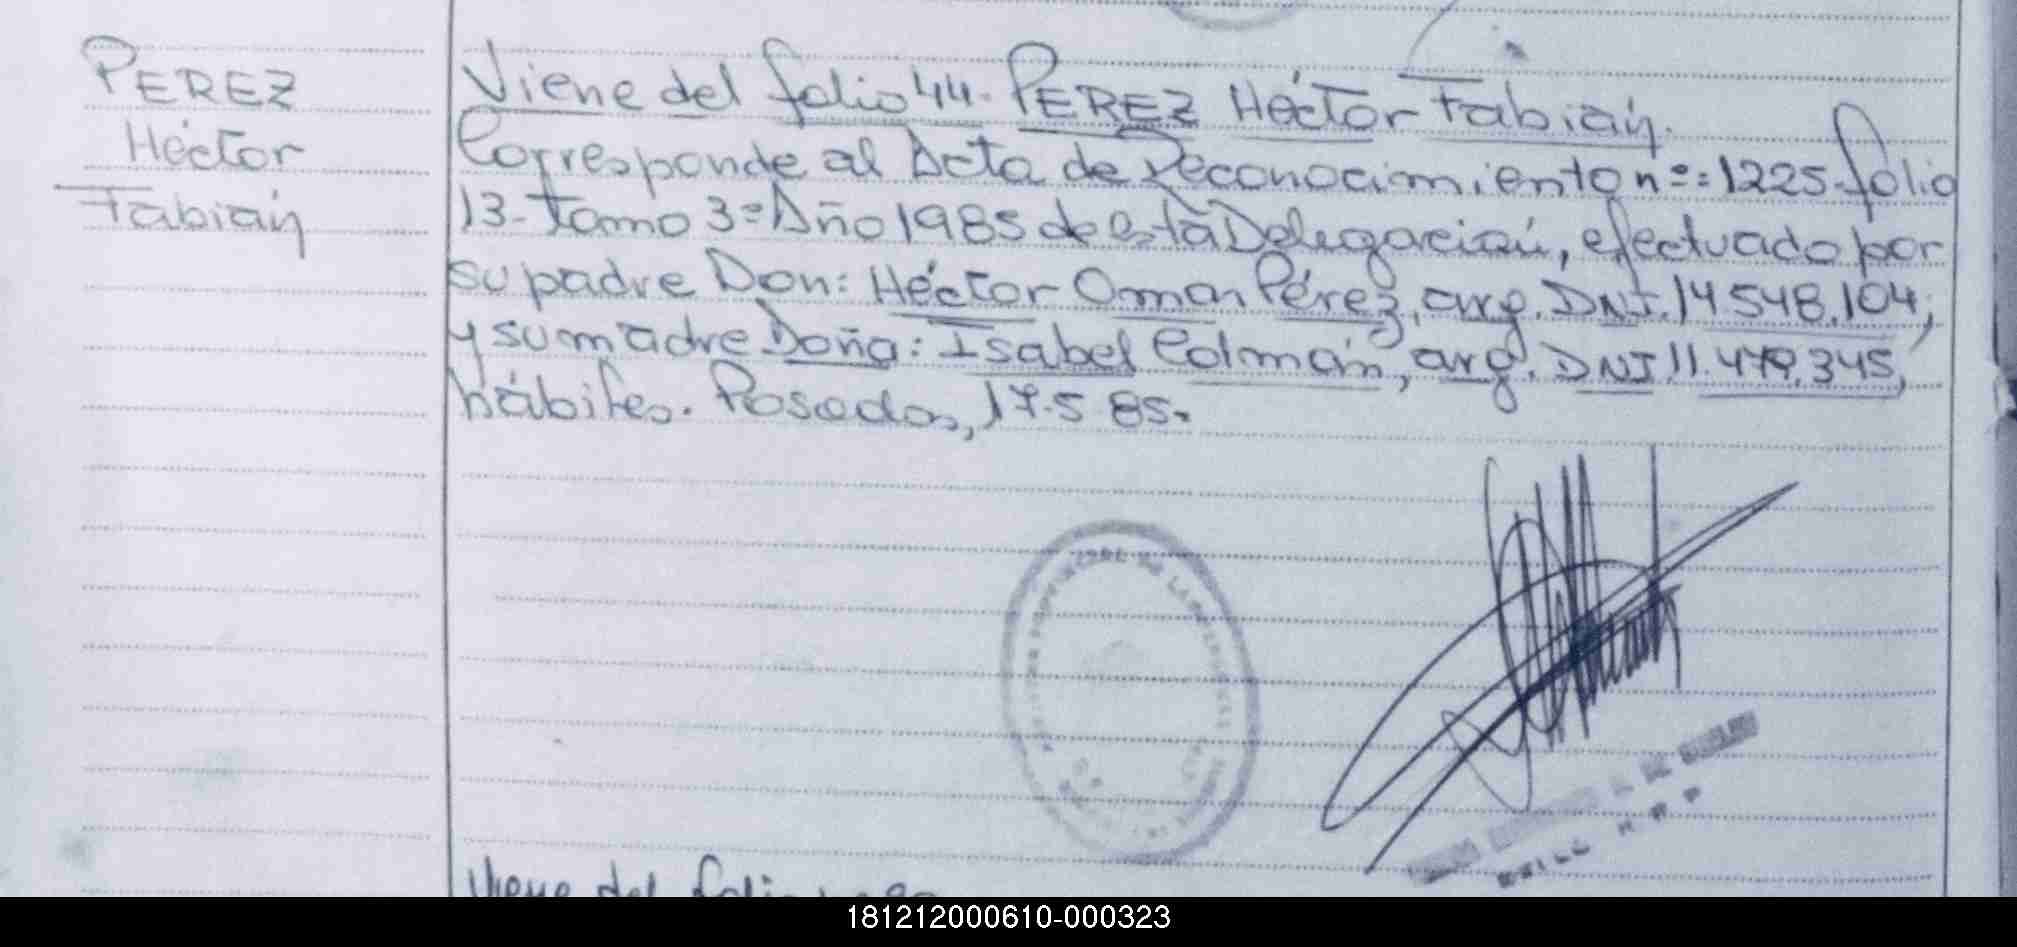 PEREZ
Héctor
Fabián
Viene del folio 44. PEREZ Héctor Fabián.
Corresponde al Acta de Reconocimiento nº: 1225. folio
13- Tomo 3º Año 1985 de esta Delegación, efectuado por
su padre Don: Héctor Omar Pérez, arg. DNI. 14548.104;
y su madre Doña: Isabel Colmán, arg. DNI 11.479.345,
hábiles. Posadas, 17.5 85.
Viene del folio
181212000610-000323